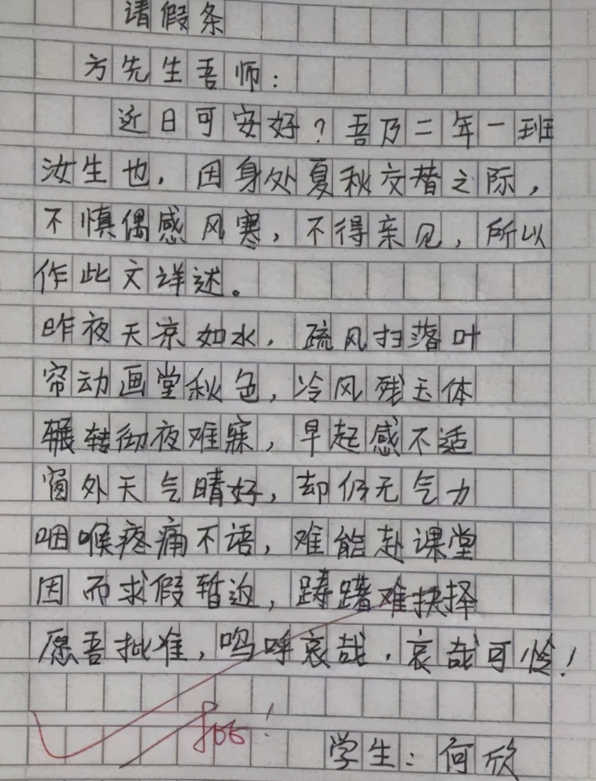 请假条
方先生吾师：
近日可安好？吾乃二年一班
汝生也，因身处夏秋交替之际，
不慎偶感风寒，不得亲见，所以
作此文详述。
昨夜天凉如水，疏风扫落叶
帘动画堂秋色，冷风残玉体
辗转彻夜难寐，早起感不适
窗外天气晴好，却仍无气力
咽喉疼痛不语，难能赴课堂
因而求假暂边，踌躇难抉择
愿吾批准，呜呼哀哉．哀哉可怜！
批！
学生：何欣